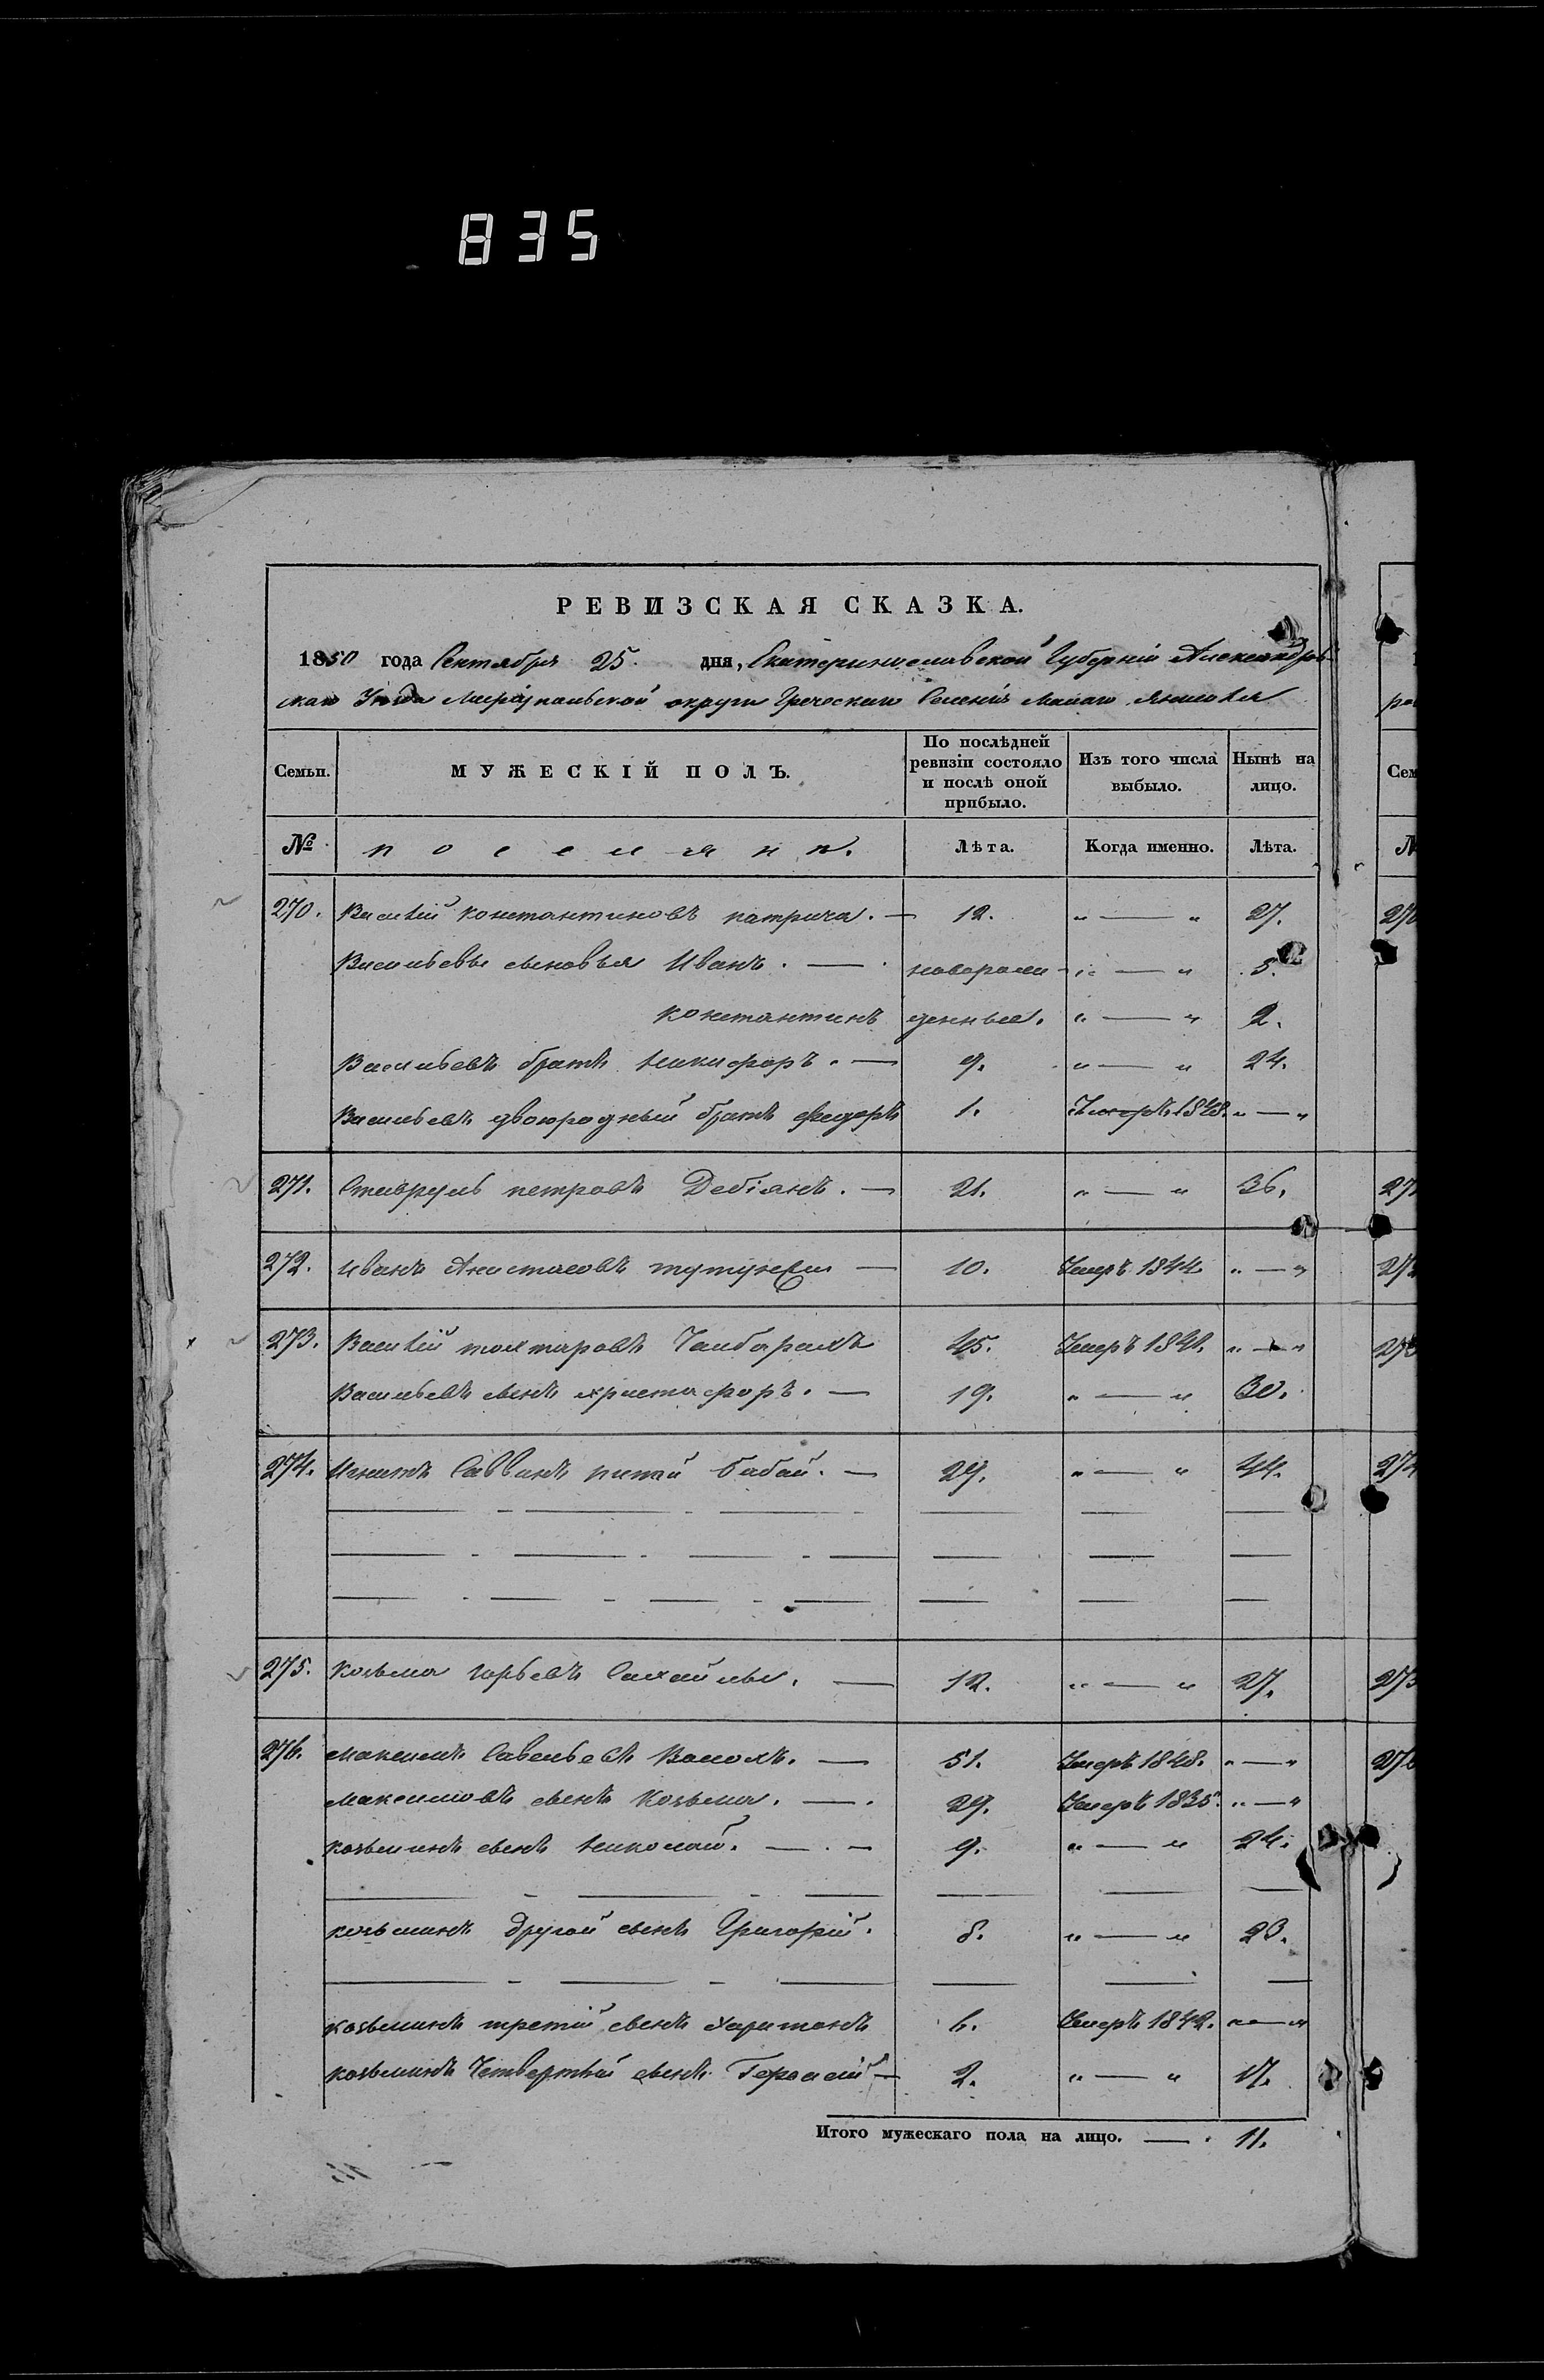 835
РЕВИЗСКАЯ СКАЗКА.
1850 года Сентября 25. дня, Екатеринославской Губернии Александров-
скаго Уезда Мариупольской округи Греческаго Селенія Малаго Янисоля
Семьи. МУЖЕСКІЙ ПОЛЪ. По послѣдней ревизіи состояло и послѣ оной прибыло. Изъ того числа выбыло. Нынѣ на лицо.
№ поселянъ. Лѣта. Когда именно. Лѣта.
270. Василій Константиновъ Патрича. — 12. „ — „ 27.
Васильевы сыновья Иванъ. — новорож- „ — „ 5.
Константинъ денные. „ — „ 2.
Васильевъ братъ Никифоръ. — 9. „ — „ 24.
Васильевъ двоюродный братъ Федоръ 1. Умеръ 1848. „ — „
271. Спавруль Петровъ Дебіянъ. — 21. „ — „ 36.
272. Иванъ Анистасовъ Тутунжи — 10. Умеръ 1844. „ — „
273. Василій Тохтаровъ Чамбарахъ 45. Умеръ 1841. „ — „
Васильевъ сынъ Христофоръ. — 19. „ — „ 30.
274. Игнатъ Саввинъ Папай Бабай. — 29. „ — „ 44.
275. Козьма Юрьевъ Сахайлы. — 12. „ — „ 27.
276. Максимъ Савельевъ Валохъ. — 51. Умеръ 1848. „ — „
Максимовъ сынъ Козьма. — 29. Умеръ 1835. „ — „
Козьминъ сынъ Николай. — 9. „ — „ 24.
Козьминъ другой сынъ Григорій. 8. „ — „ 23.
Козьминъ третій сынъ Харитонъ 6. Умеръ 1842. „ — „
Козьминъ Четвертый сынъ Герасей — 2. „ — „ 17.
Итого мужескаго пола на лицо. — 11.